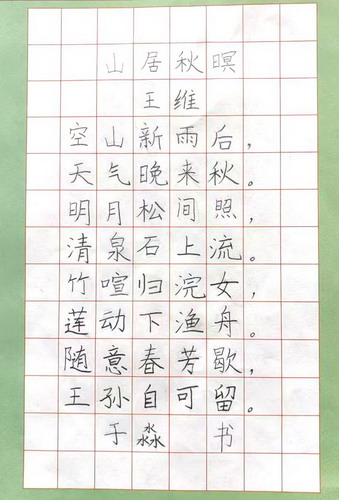 山居秋暝
王维
空山新雨后，
天气晚来秋。
明月松间照，
清泉石上流。
竹喧归浣女，
莲动下渔舟。
随意春芳歇，
王孙自可留。
于淼 书